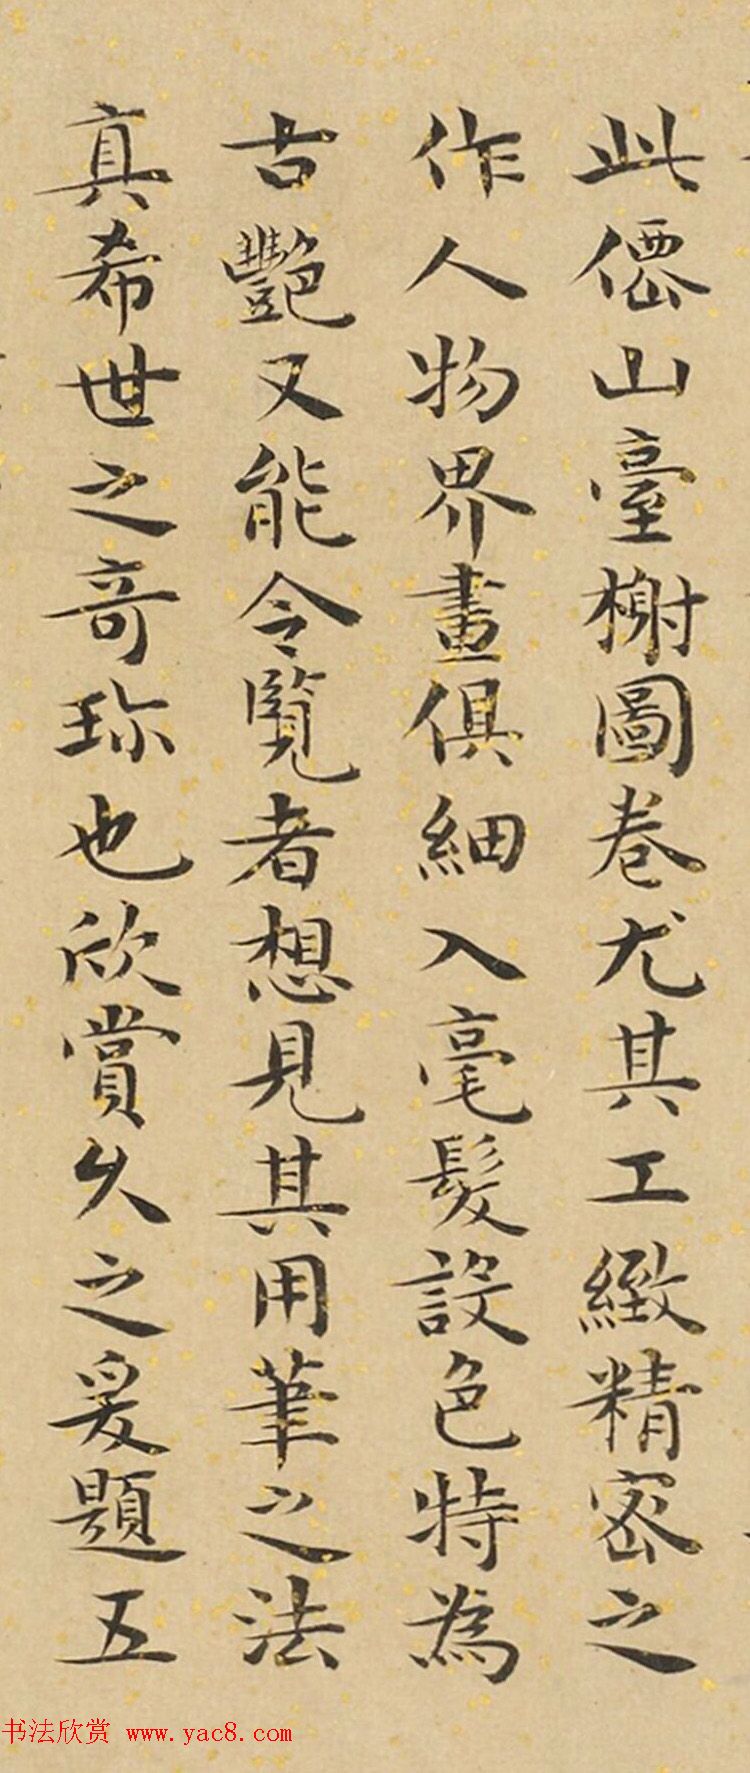 此僊山臺榭圖卷尤其工緻精密之
作人物界畫俱細入毫髮設色特為
古艷又能令覧者想見其用筆之法
真希世之奇珎也欣賞久之爰題五
书法欣赏 www.yac8.com